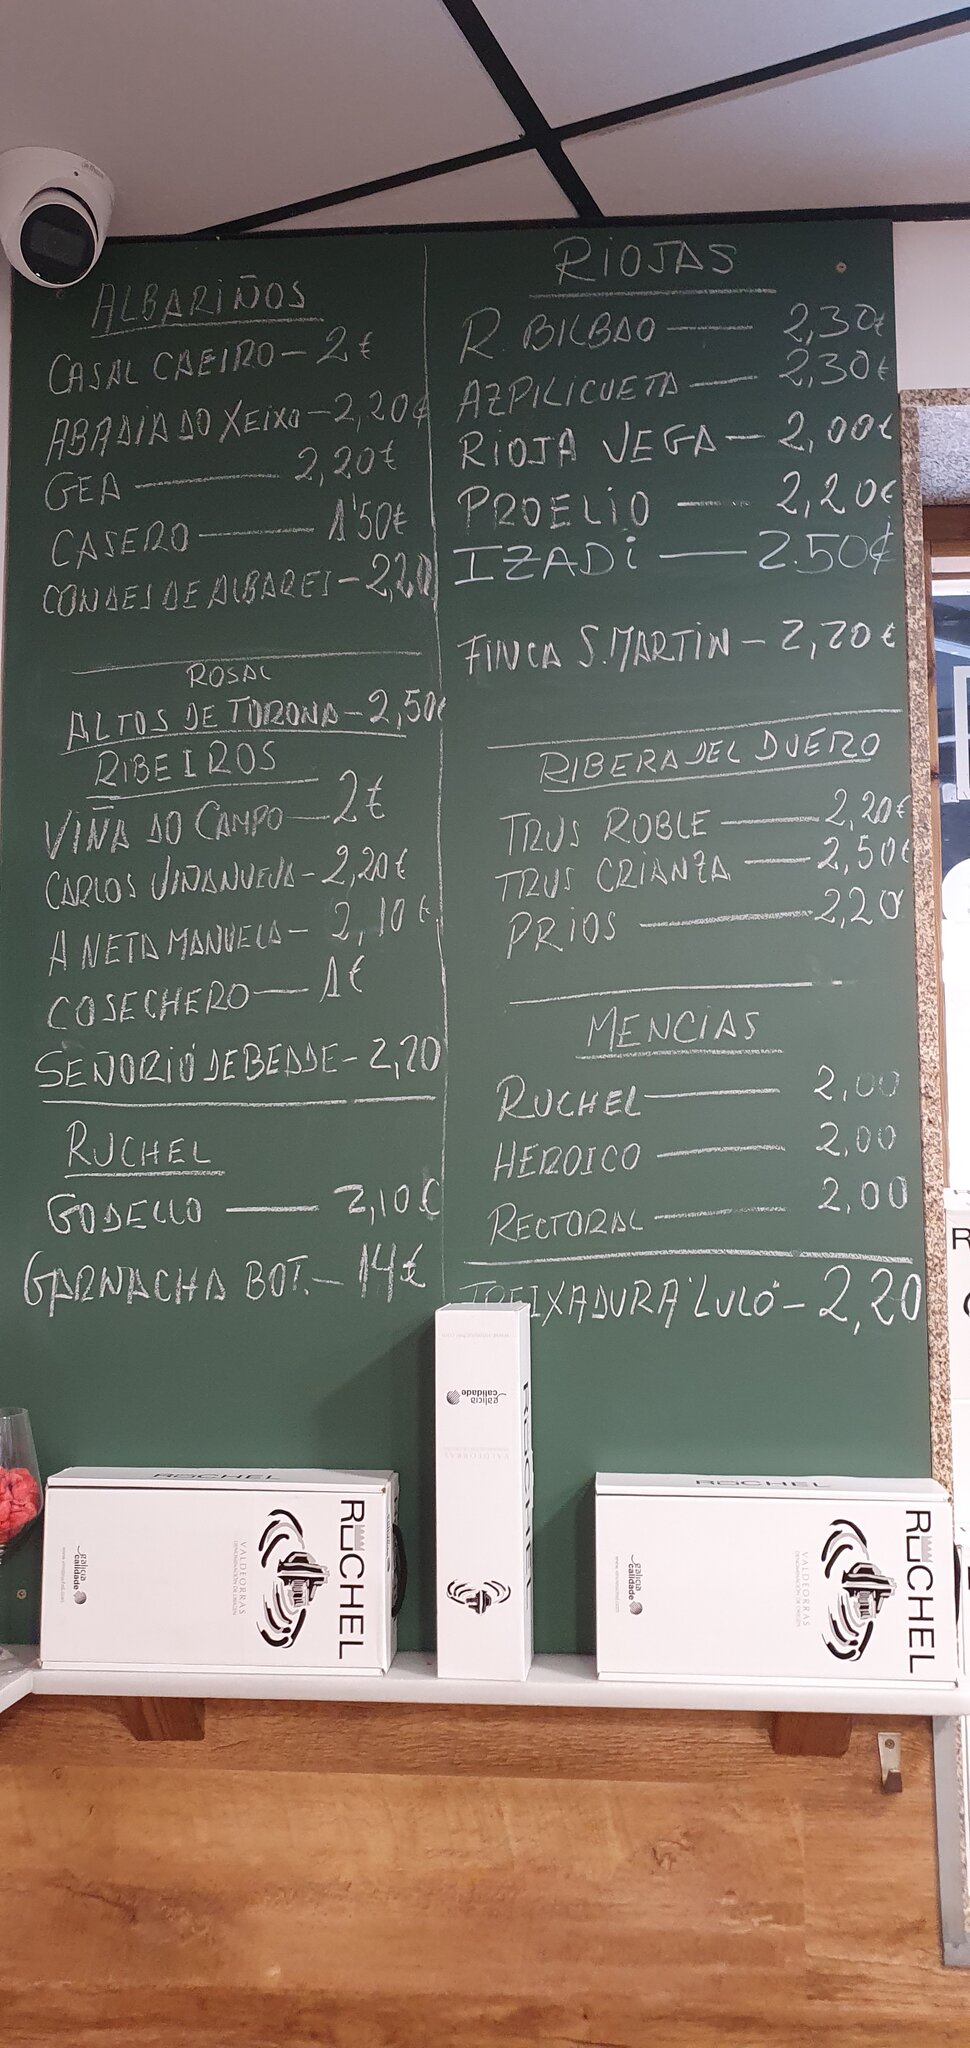 ALBARIÑOS
CASAL CAEIRO - 2€
ABADIA DO XEIXO - 2,20€
GEA — 2,20€
CASERO — 1'50€
CONDES DE ALBAREI - 2,20
ROSAL
ALTOS DE TORONA - 2,50€
RIBEIROS
VIÑA DO CAMPO — 2€
CARLOS VIÑANUEVA - 2,20€
A NETA MANUELA - 2,10€
COSECHERO — 1€
SEÑORIO DE BEDDE - 2,20
RUCHEL
GODELLO — 2,10€
GARNACHA BOT. - 14€
RIOJAS
R. BILBAO — 2,30€
AZPILICUETA — 2,30€
RIOJA VEGA — 2,00€
PROELIO — 2,20€
IZADI — 2.50€
FINCA S. MARTIN - 2,20€
RIBERA DEL DUERO
TRUS ROBLE — 2,20€
TRUS CRIANZA — 2,50€
PRIOS — 2,20
MENCIAS
RUCHEL — 2,00
HEROICO — 2,00
RECTORAL — 2,00
TREIXADURA "LULO" - 2,20
RUCHEL
RUCHEL
VALDEORRAS
DENOMINACIÓN DE ORIGEN
galicia
calidade
galicia
calidade
VALDEORRAS
RUCHEL
RUCHEL
RUCHEL
VALDEORRAS
DENOMINACIÓN DE ORIGEN
galicia
calidade